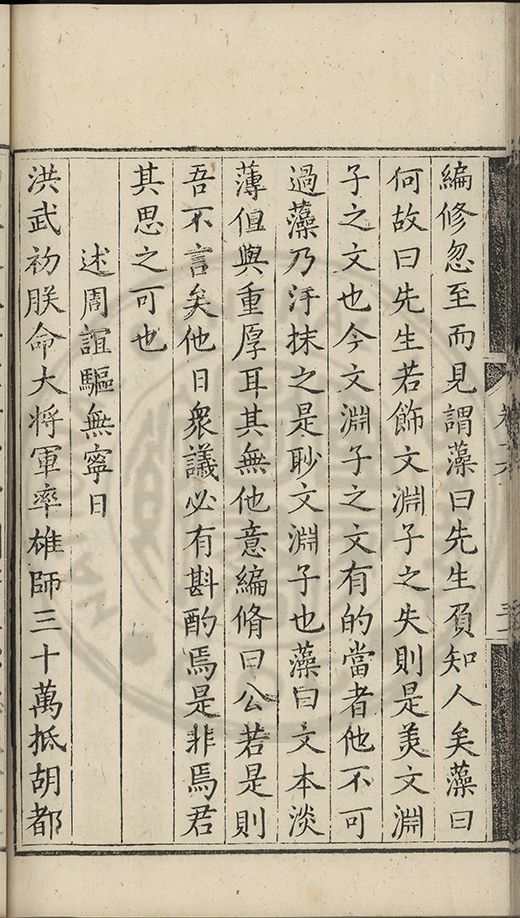 編修忽至而見謂藻曰先生頗知人矣藻曰
何故曰先生若飾文淵子之失則是美文淵
子之文也今文淵子之文有的當者他不可
過藻乃汙抹之是眇文淵子也藻曰文本淡
薄但與重厚耳其無他意編脩曰公若是則
吾不言矣他日衆議必有斟酌焉是非焉君
其思之可也
述周誼驅無寧日
洪武初朕命大將軍率雄師三十萬抵胡都